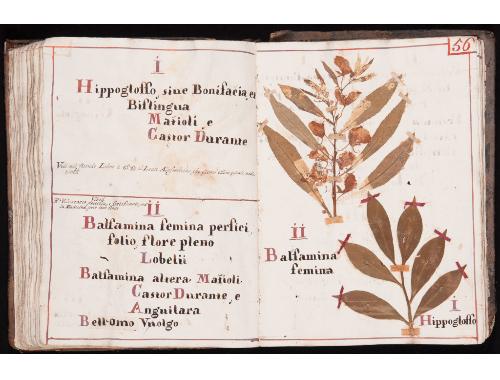 i
Hippoglosso, siue Bonifacia, et
Bislingua
Matioli e
Castor Durante
ii
Balsamina femina persici
folio, flore pleno
Lobelii
Balsamina altera Matioli
Castor Durante, e
Anguilara
Bell'omo Vuolgo
56
ii
Balsamina
femina
i
Hippoglosso